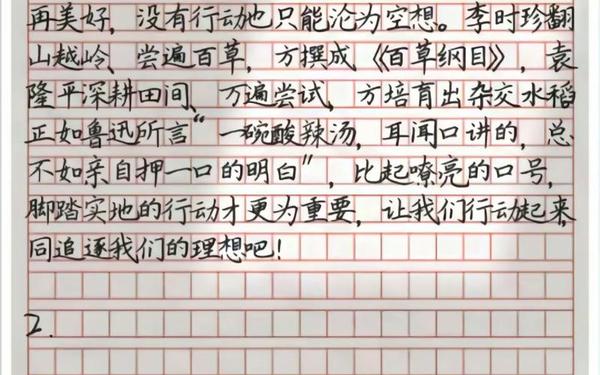 再美好，没有行动也只能沦为空想。李时珍翻
山越岭、尝遍百草，方撰成《百草纲目》，袁
隆平深耕田间、万遍尝试，方培育出杂交水稻
正如鲁迅所言“一碗酸辣汤，耳闻口讲的，总
不如亲自押一口的明白”，比起嘹亮的口号，
脚踏实地的行动才更为重要，让我们行动起来，
同追逐我们的理想吧！
2.